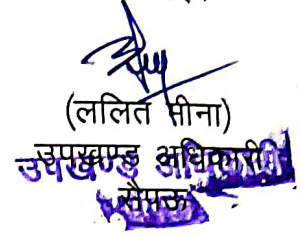 (ललित मीना)
उपखण्ड अधिकारी
उपखण्ड अधिकारी
सैंपऊ